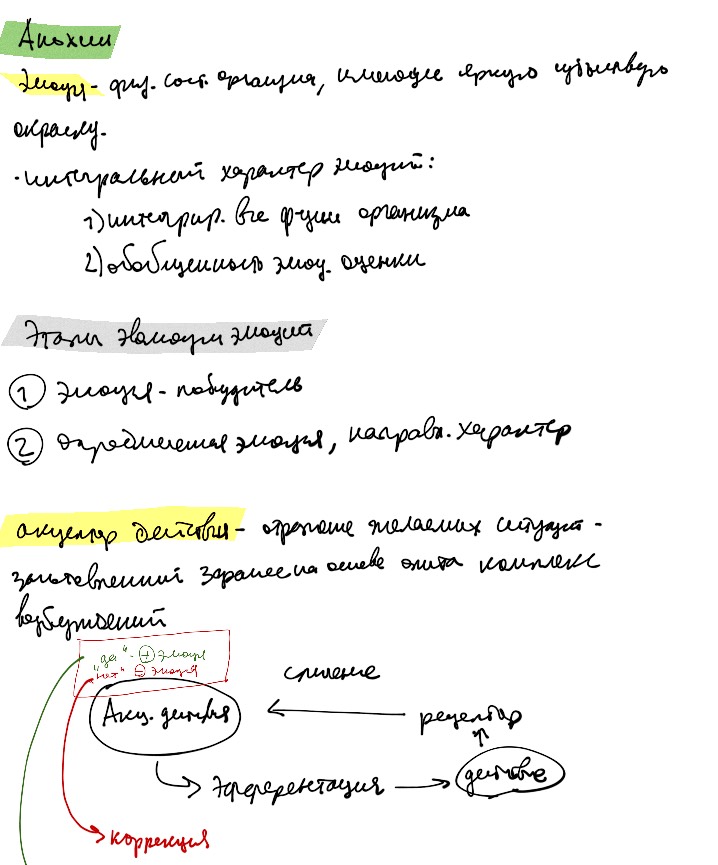 Анохин
Эмоция - физ. сост. организма, имеющие яркую субъективную
окраску.
· интегральный характер эмоций:
1) интегрир. все функции организма
2) обобщенность эмоц. оценки
Этапы эволюции эмоций
① Эмоция - побудитель
② определенная эмоция, направл. характер
акцептор действия - отражение желаемых ситуаций -
заготовленный заранее на основе опыта комплекс
возбуждений
"да" - ⊕ эмоция
"нет" ⊖ эмоция
сличение
Акц. действия
рецептор
Эфферентация
действие
коррекция